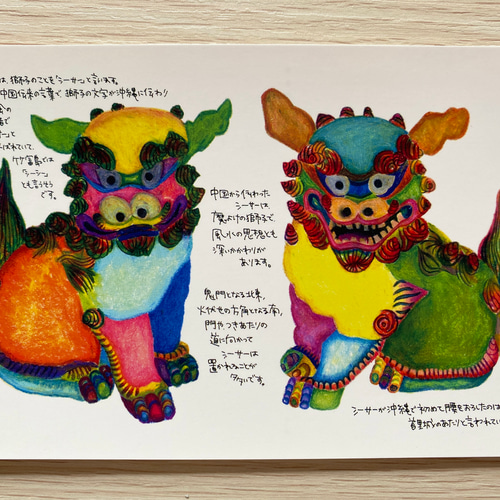 は、獅子のことを「シーサー」と言います。
中国伝来の言葉で、獅子の文字が沖縄に伝わり
で
れていて、
竹富島では
とも言うそう
です。
中国から伝わった
シーサーは、
魔よけの獅子で、
風水の思想とも
深いかかわりが
あります。
鬼門となる北東、
火伏せの方角となる南、
門やつきあたりの
道に向かって
シーサーは
置かれることが
多いです。
シーサーが沖縄で初めて腰をおろしたのは
首里城のあたりと言われてい